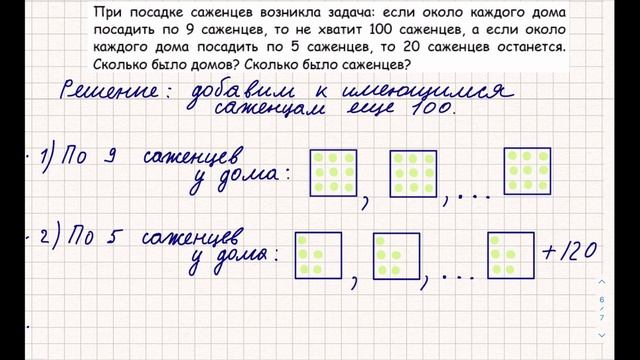 При посадке саженцев возникла задача: если около каждого дома
посадить по 9 саженцев, то не хватит 100 саженцев, а если около
каждого дома посадить по 5 саженцев, то 20 саженцев останется.
Сколько было домов? Сколько было саженцев?
Решение: добавим к имеющимся
саженцам еще 100.
1) По 9 саженцев
у дома: , , ...
2) По 5 саженцев
у дома: , , ... + 120
6 / 7